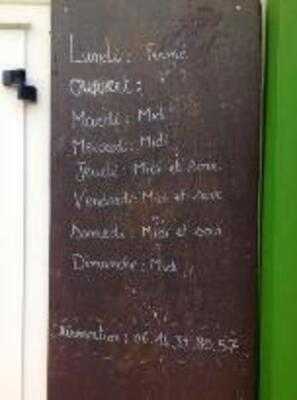 Lundi : Fermé
OUVERT :
Mardi : Midi
Mercredi : Midi
Jeudi : Midi et soir
Vendredi : Midi et soir
Samedi : Midi et soir
Dimanche : Midi
Réservation : 06.14.31.89.57